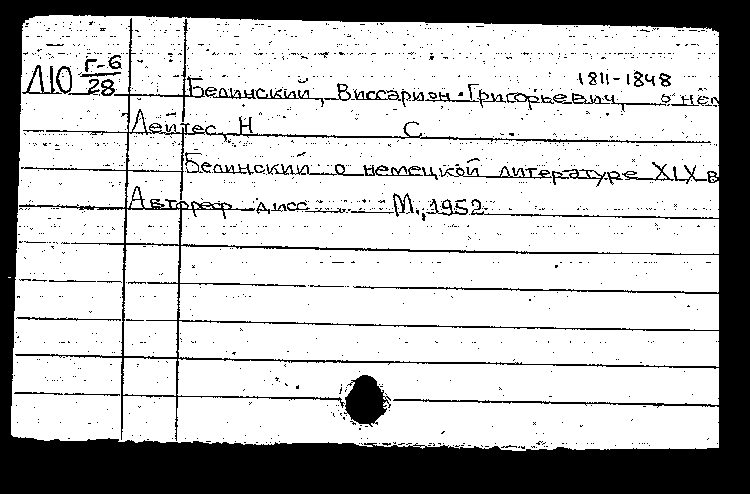 Л10 Г-6/28
1811-1848
Белинский, Виссарион Григорьевич, о нем
Лейтес, Н С.
Белинский о немецкой литературе XIX в
Автореф дисс М., 1952